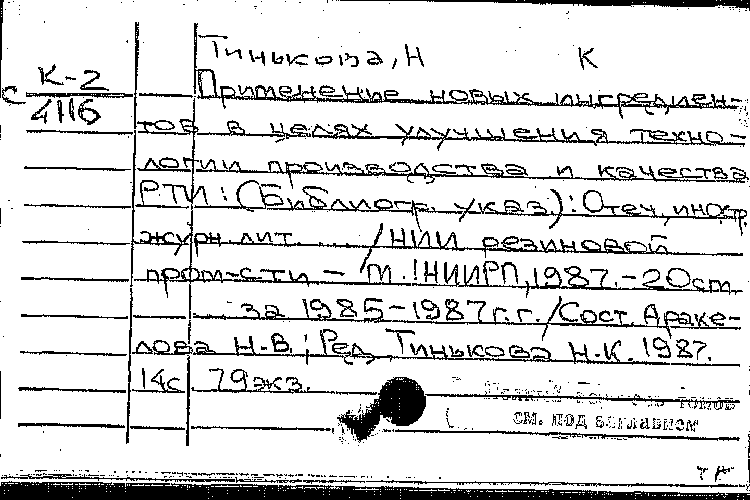 Тинькова, Н К
с К-2
4116
Применение новых ингредиен-
тов в целях улучшения техно-
логии производства и качества
РТИ: (Библиогр. указ): Отеч., иностр.
журн. лит. ... /НИИ резиновой
пром-сти - М.: НИИРП, 1987. - 20 см
... за 1985-1987 г.г. / Сост. Араке-
лова Н.В.; Ред. Тинькова Н.К. 1987.
14с 79экз.
см. под заглавием